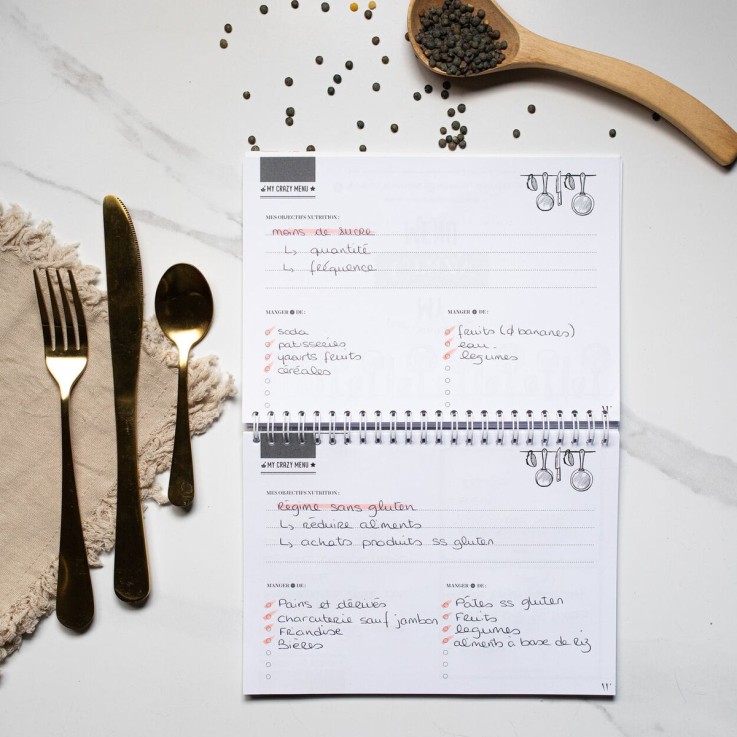 MY CRAZY MENU
MES OBJECTIFS NUTRITION :
moins de sucre
↳ quantité
↳ fréquence
MANGER DE :
soda
patisseries
yaourts fruits
céréales
MANGER DE :
fruits (d bananes)
eau.
legumes
MY CRAZY MENU
MES OBJECTIFS NUTRITION :
Régime sans gluten
↳ réduire aliments
↳ achats produits ss gluten
MANGER DE :
Pains et dérivés
charcuterie sauf jambon
Friandise
Bières
MANGER DE :
Pâtes ss gluten
Fruits
legumes
aliments à base de riz